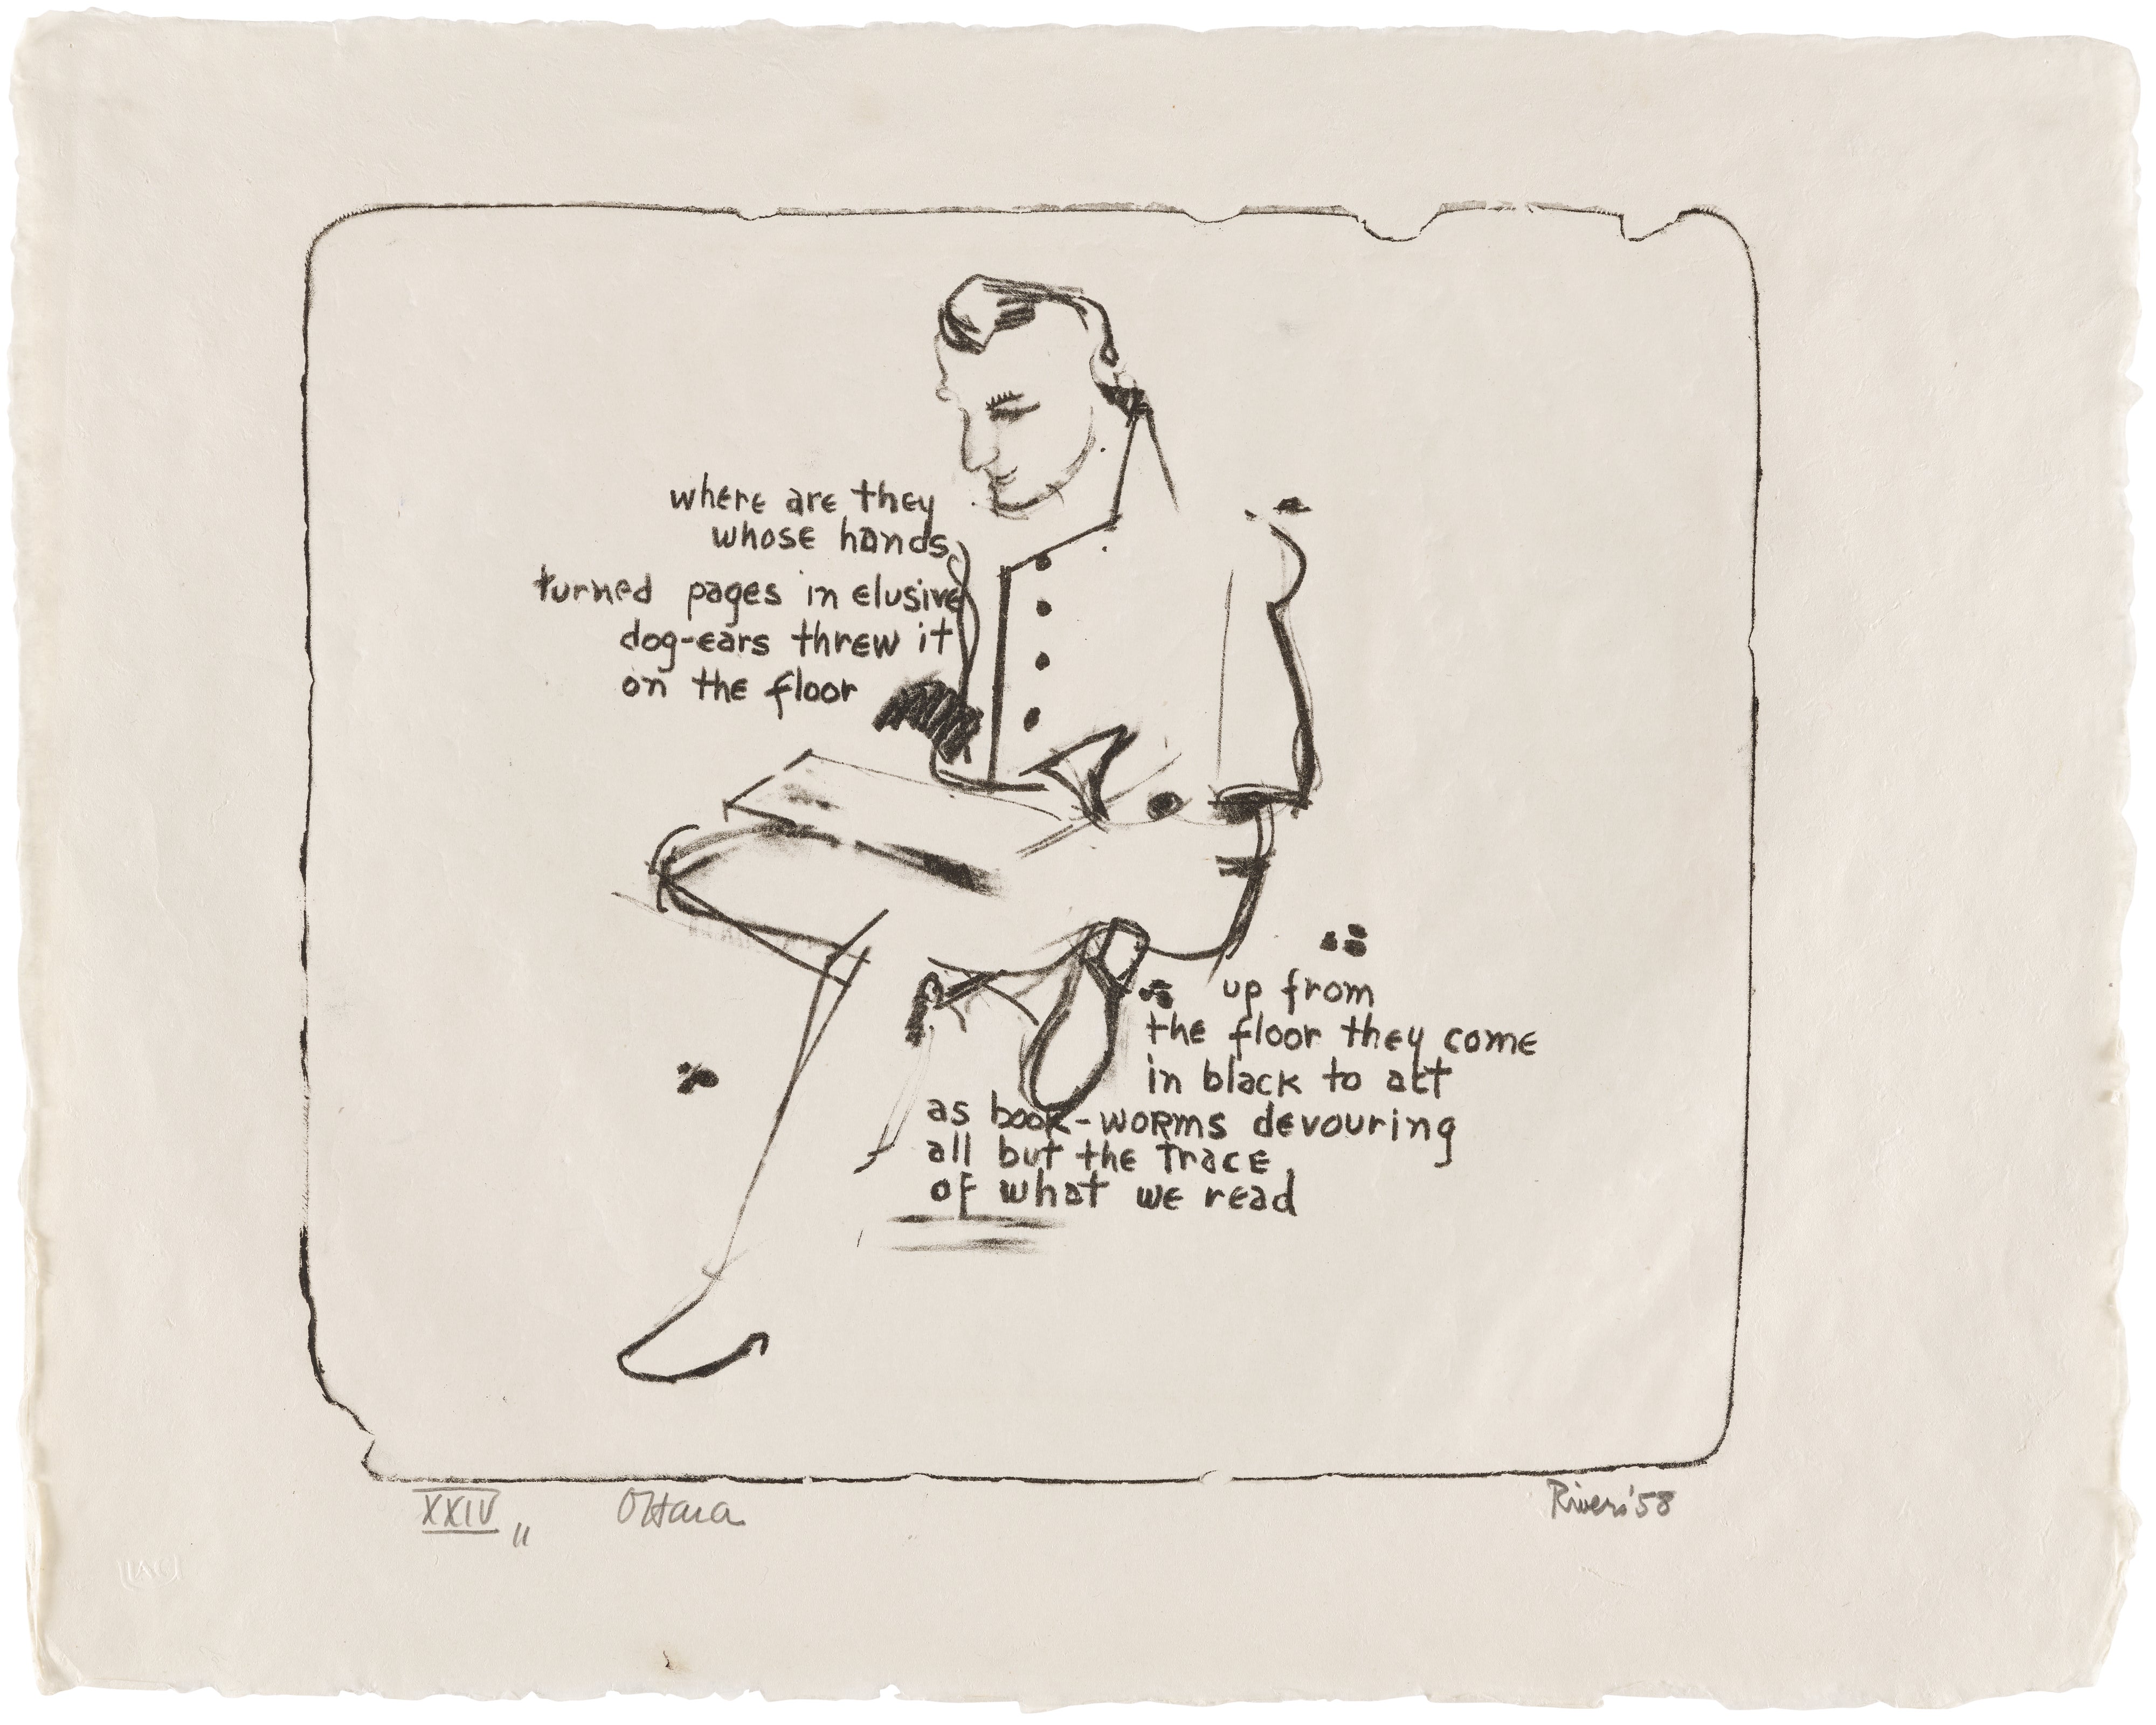 where are they
whose hands
turned pages in elusive
dog-ears threw it
on the floor
up from
the floor they come
in black to act
as book-worms devouring
all but the trace
of what we read
XXIV
O'Hara
Rivers '58